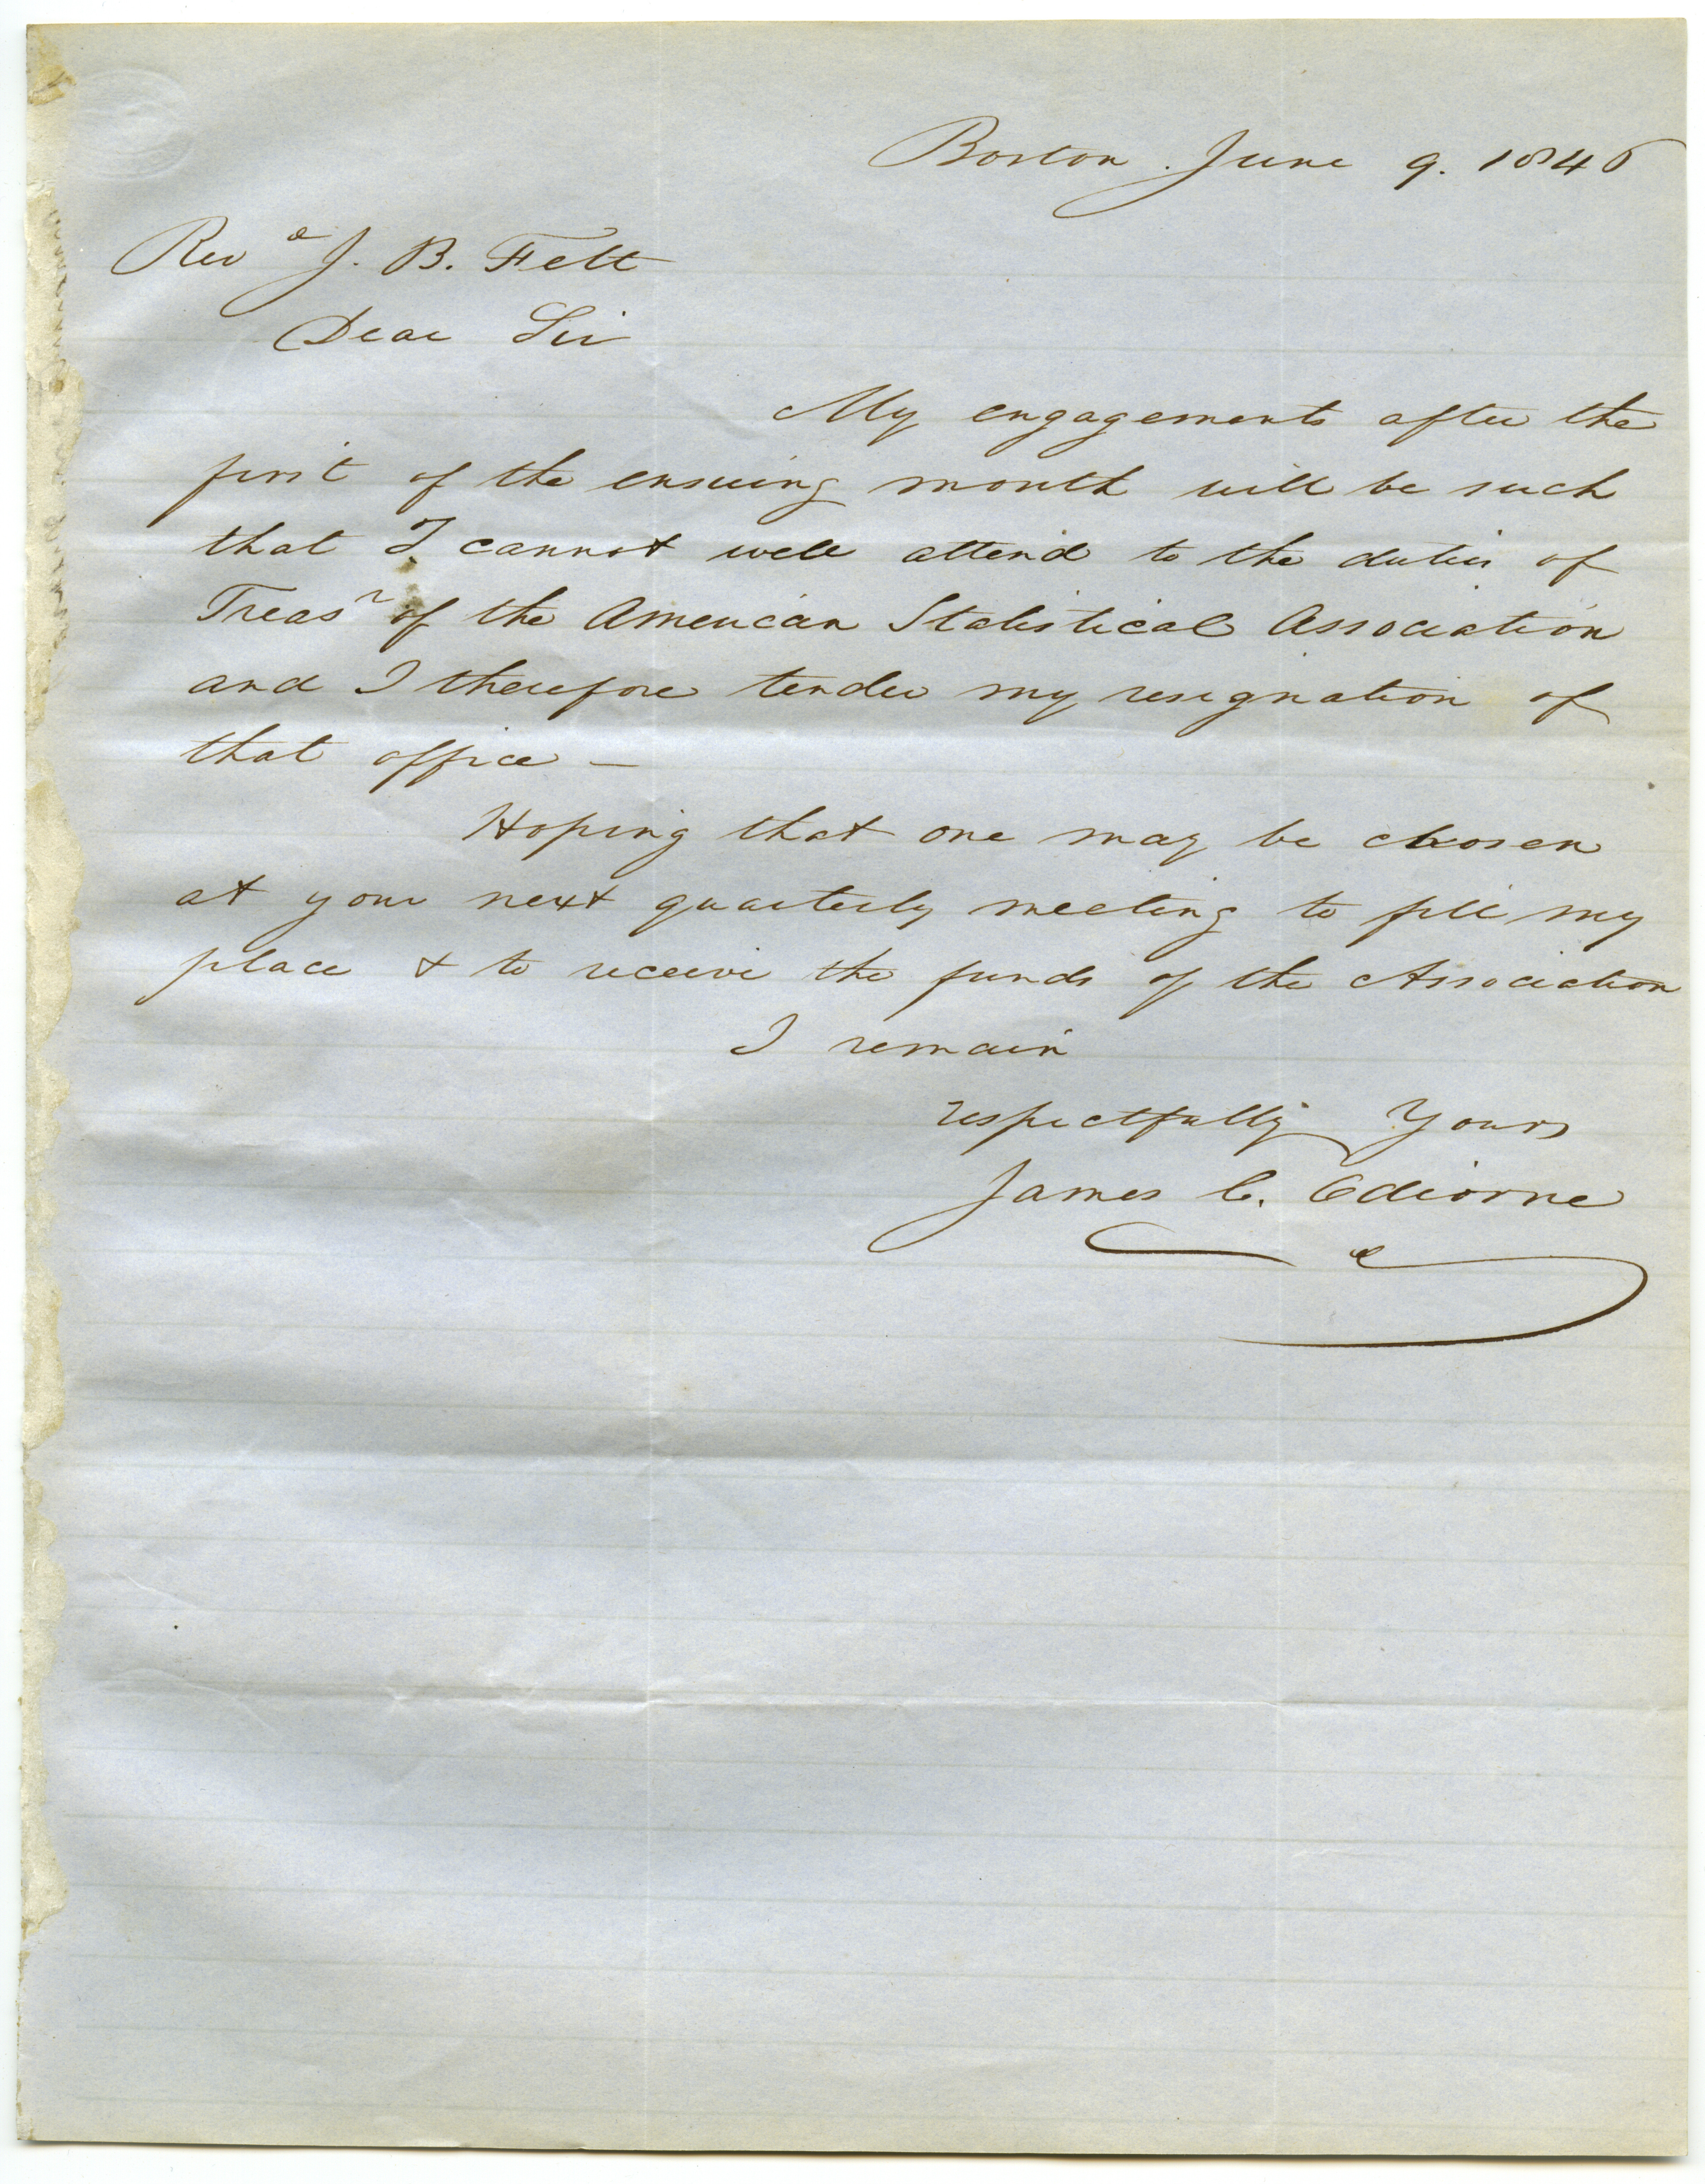 Boston. June 9. 1846
Revd J. B. Felt
Dear Sir
My engagements after the
first of the ensuing month will be such
that I cannot well attend to the duties of
Treasr of the American Statistical Association
and I therefore tender my resignation of
that office —
Hoping that one may be chosen
at your next quarterly meeting to fill my
place & to receive the funds of the Association
I remain
respectfully Yours
James C. Odiorne